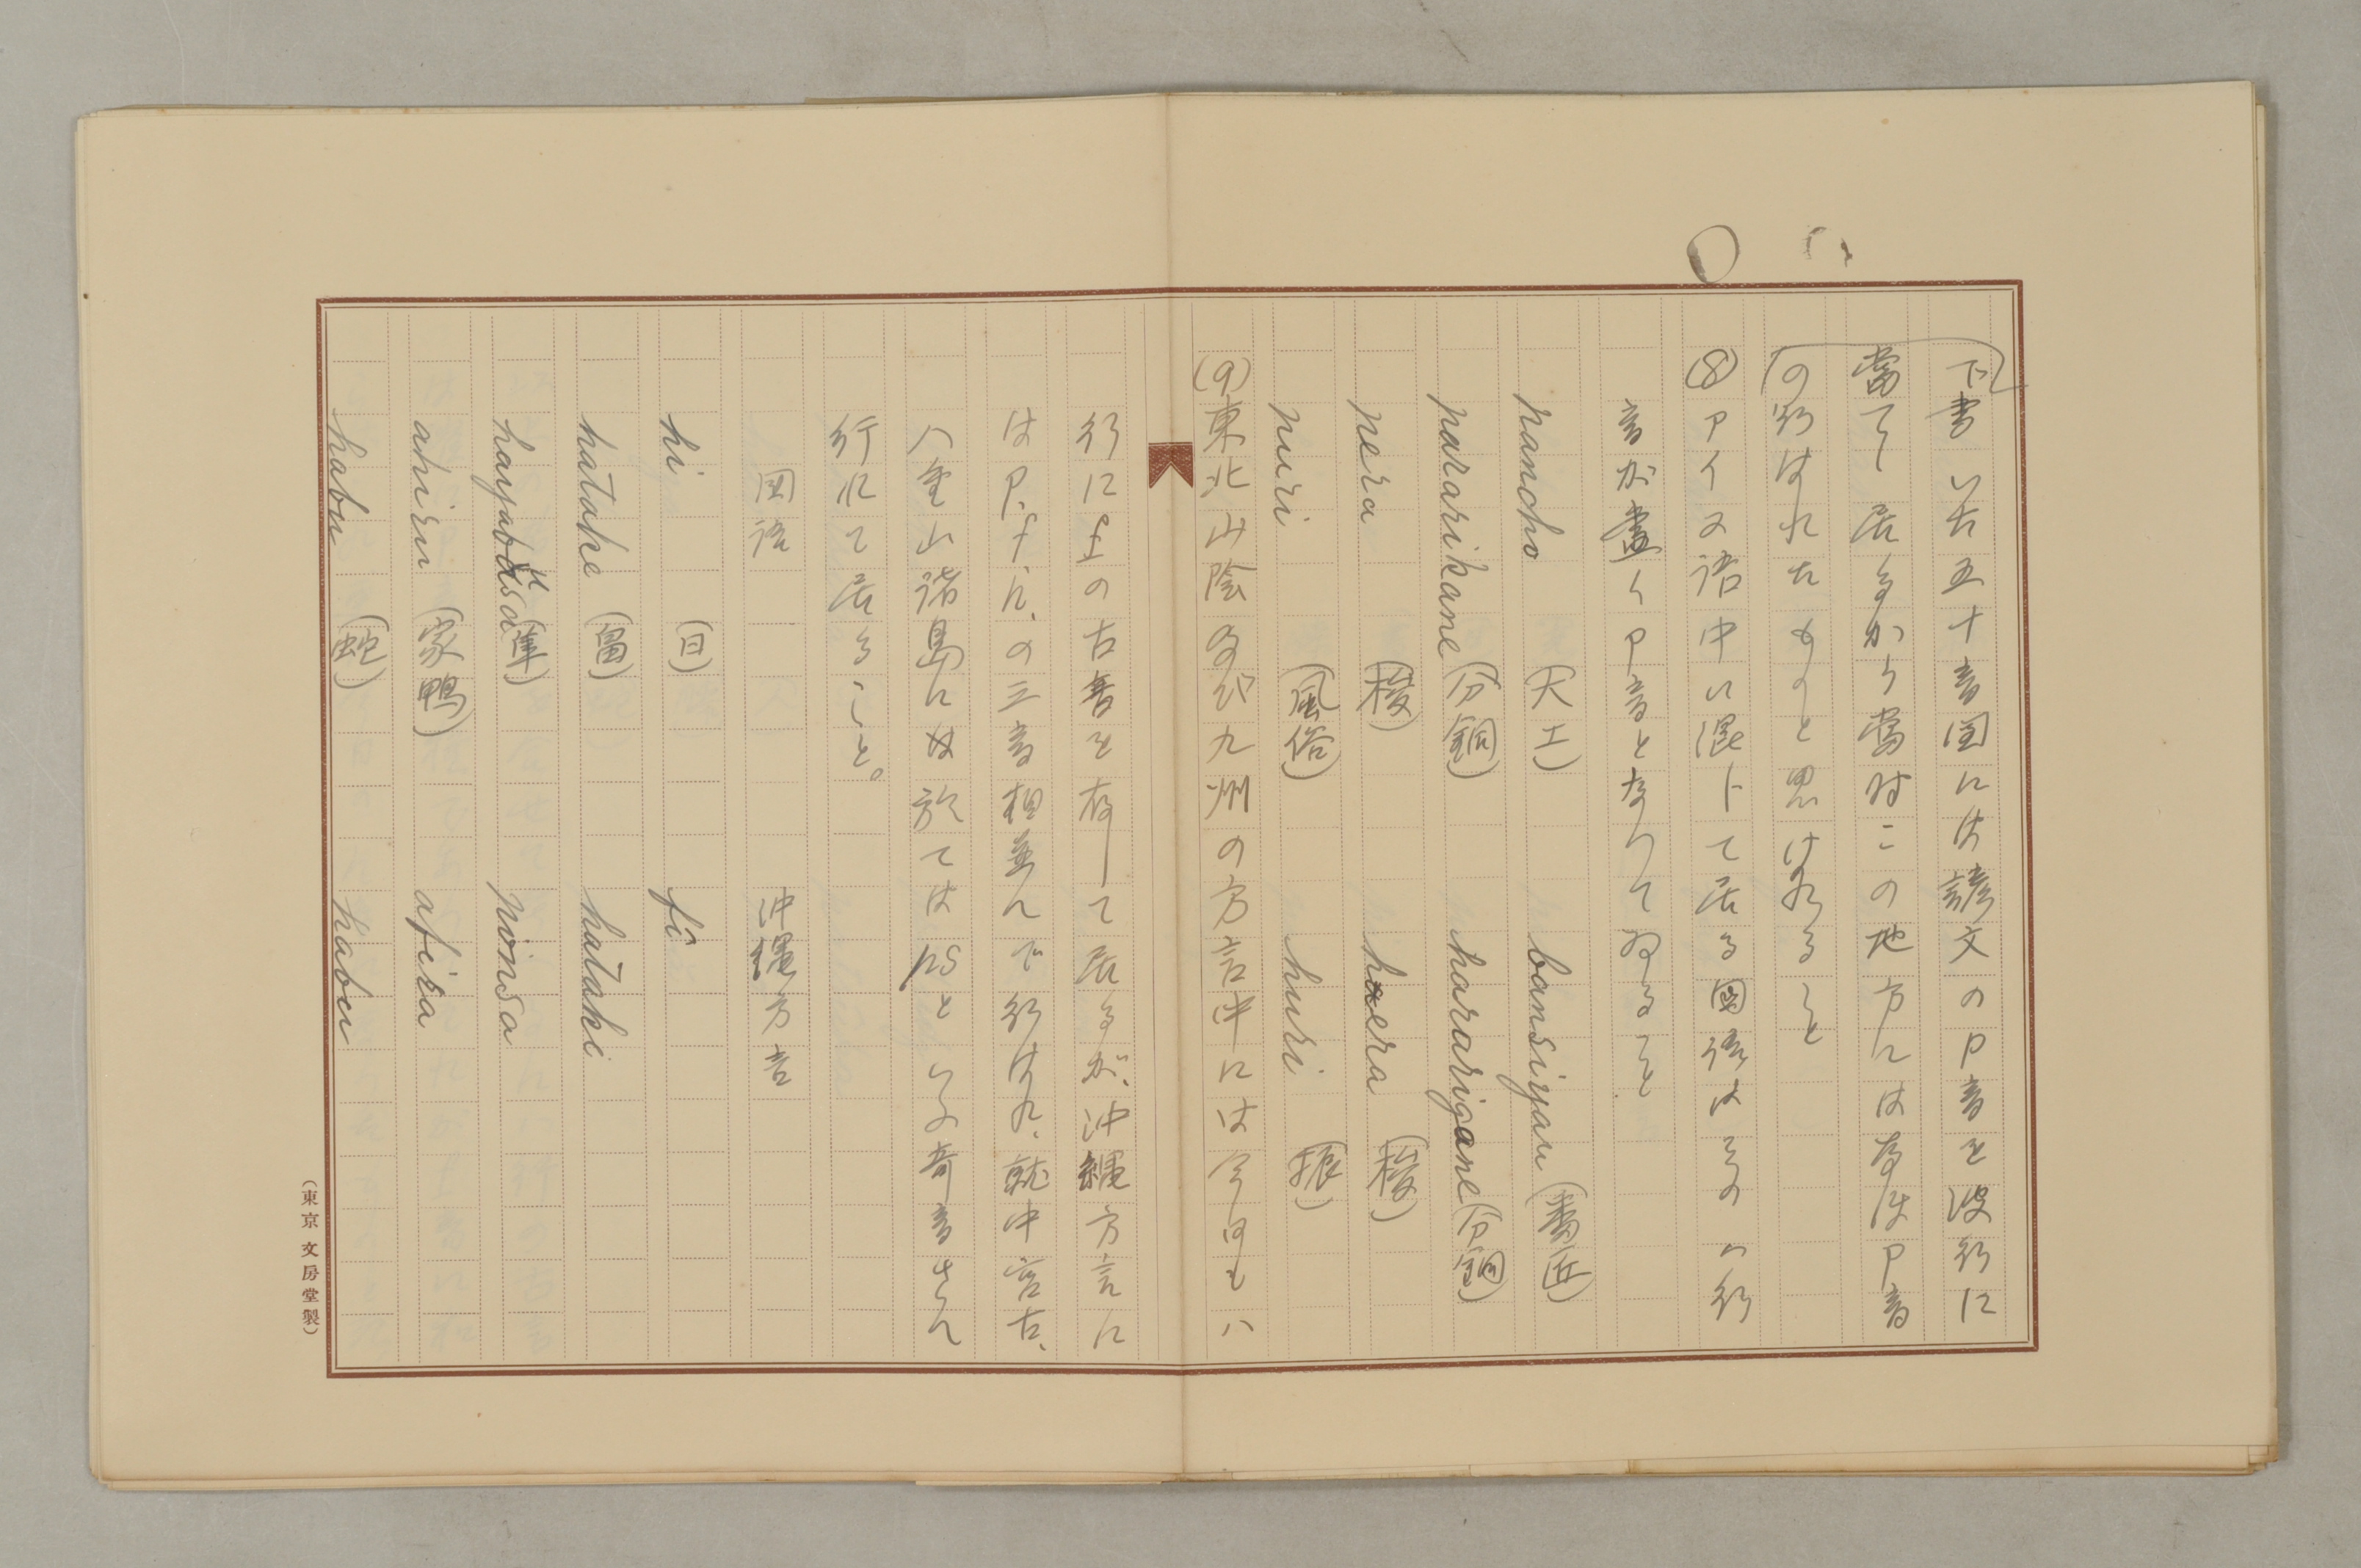 下書い古五十音圖には諺文のP音を波行に
當てし居るから當時この地方にはなほP音
の行はれたものと思はれること
(8)アイヌ語中に混トて居る國語はその八行
音が盡くP音となりてゐること
pancho (大工) bansiyau (番匠)
pararikane (分銅) hararigane (分銅)
pera (梭) hera (梭)
puri (風俗) huri (振)
(9)東北山陰及び九州の方言中には今日もハ
行にfの古音を存して居るが、沖縄方言に
はP.f.h.の三音相並んで行はれ、就中宮古、
八重山諸島に於てはpsといふ奇音さへ
行はれて居ること。
國語 沖縄方言
hi (日) fî
hatake (畠) hataki
hayabusa (隼) poinsa
ahiru (家鴨) afira
habu (蛇) habu
(東京文房堂製)